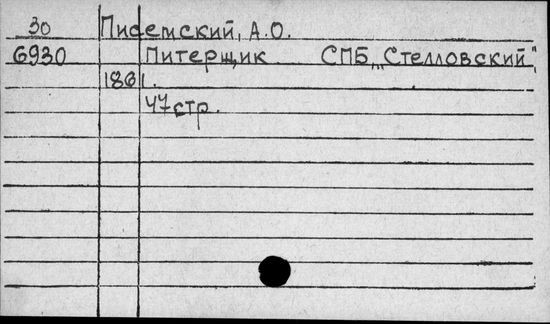 30 Писемский, А.О.
6930 Питерщик СПБ „Стелловский",
1861.
47 стр.